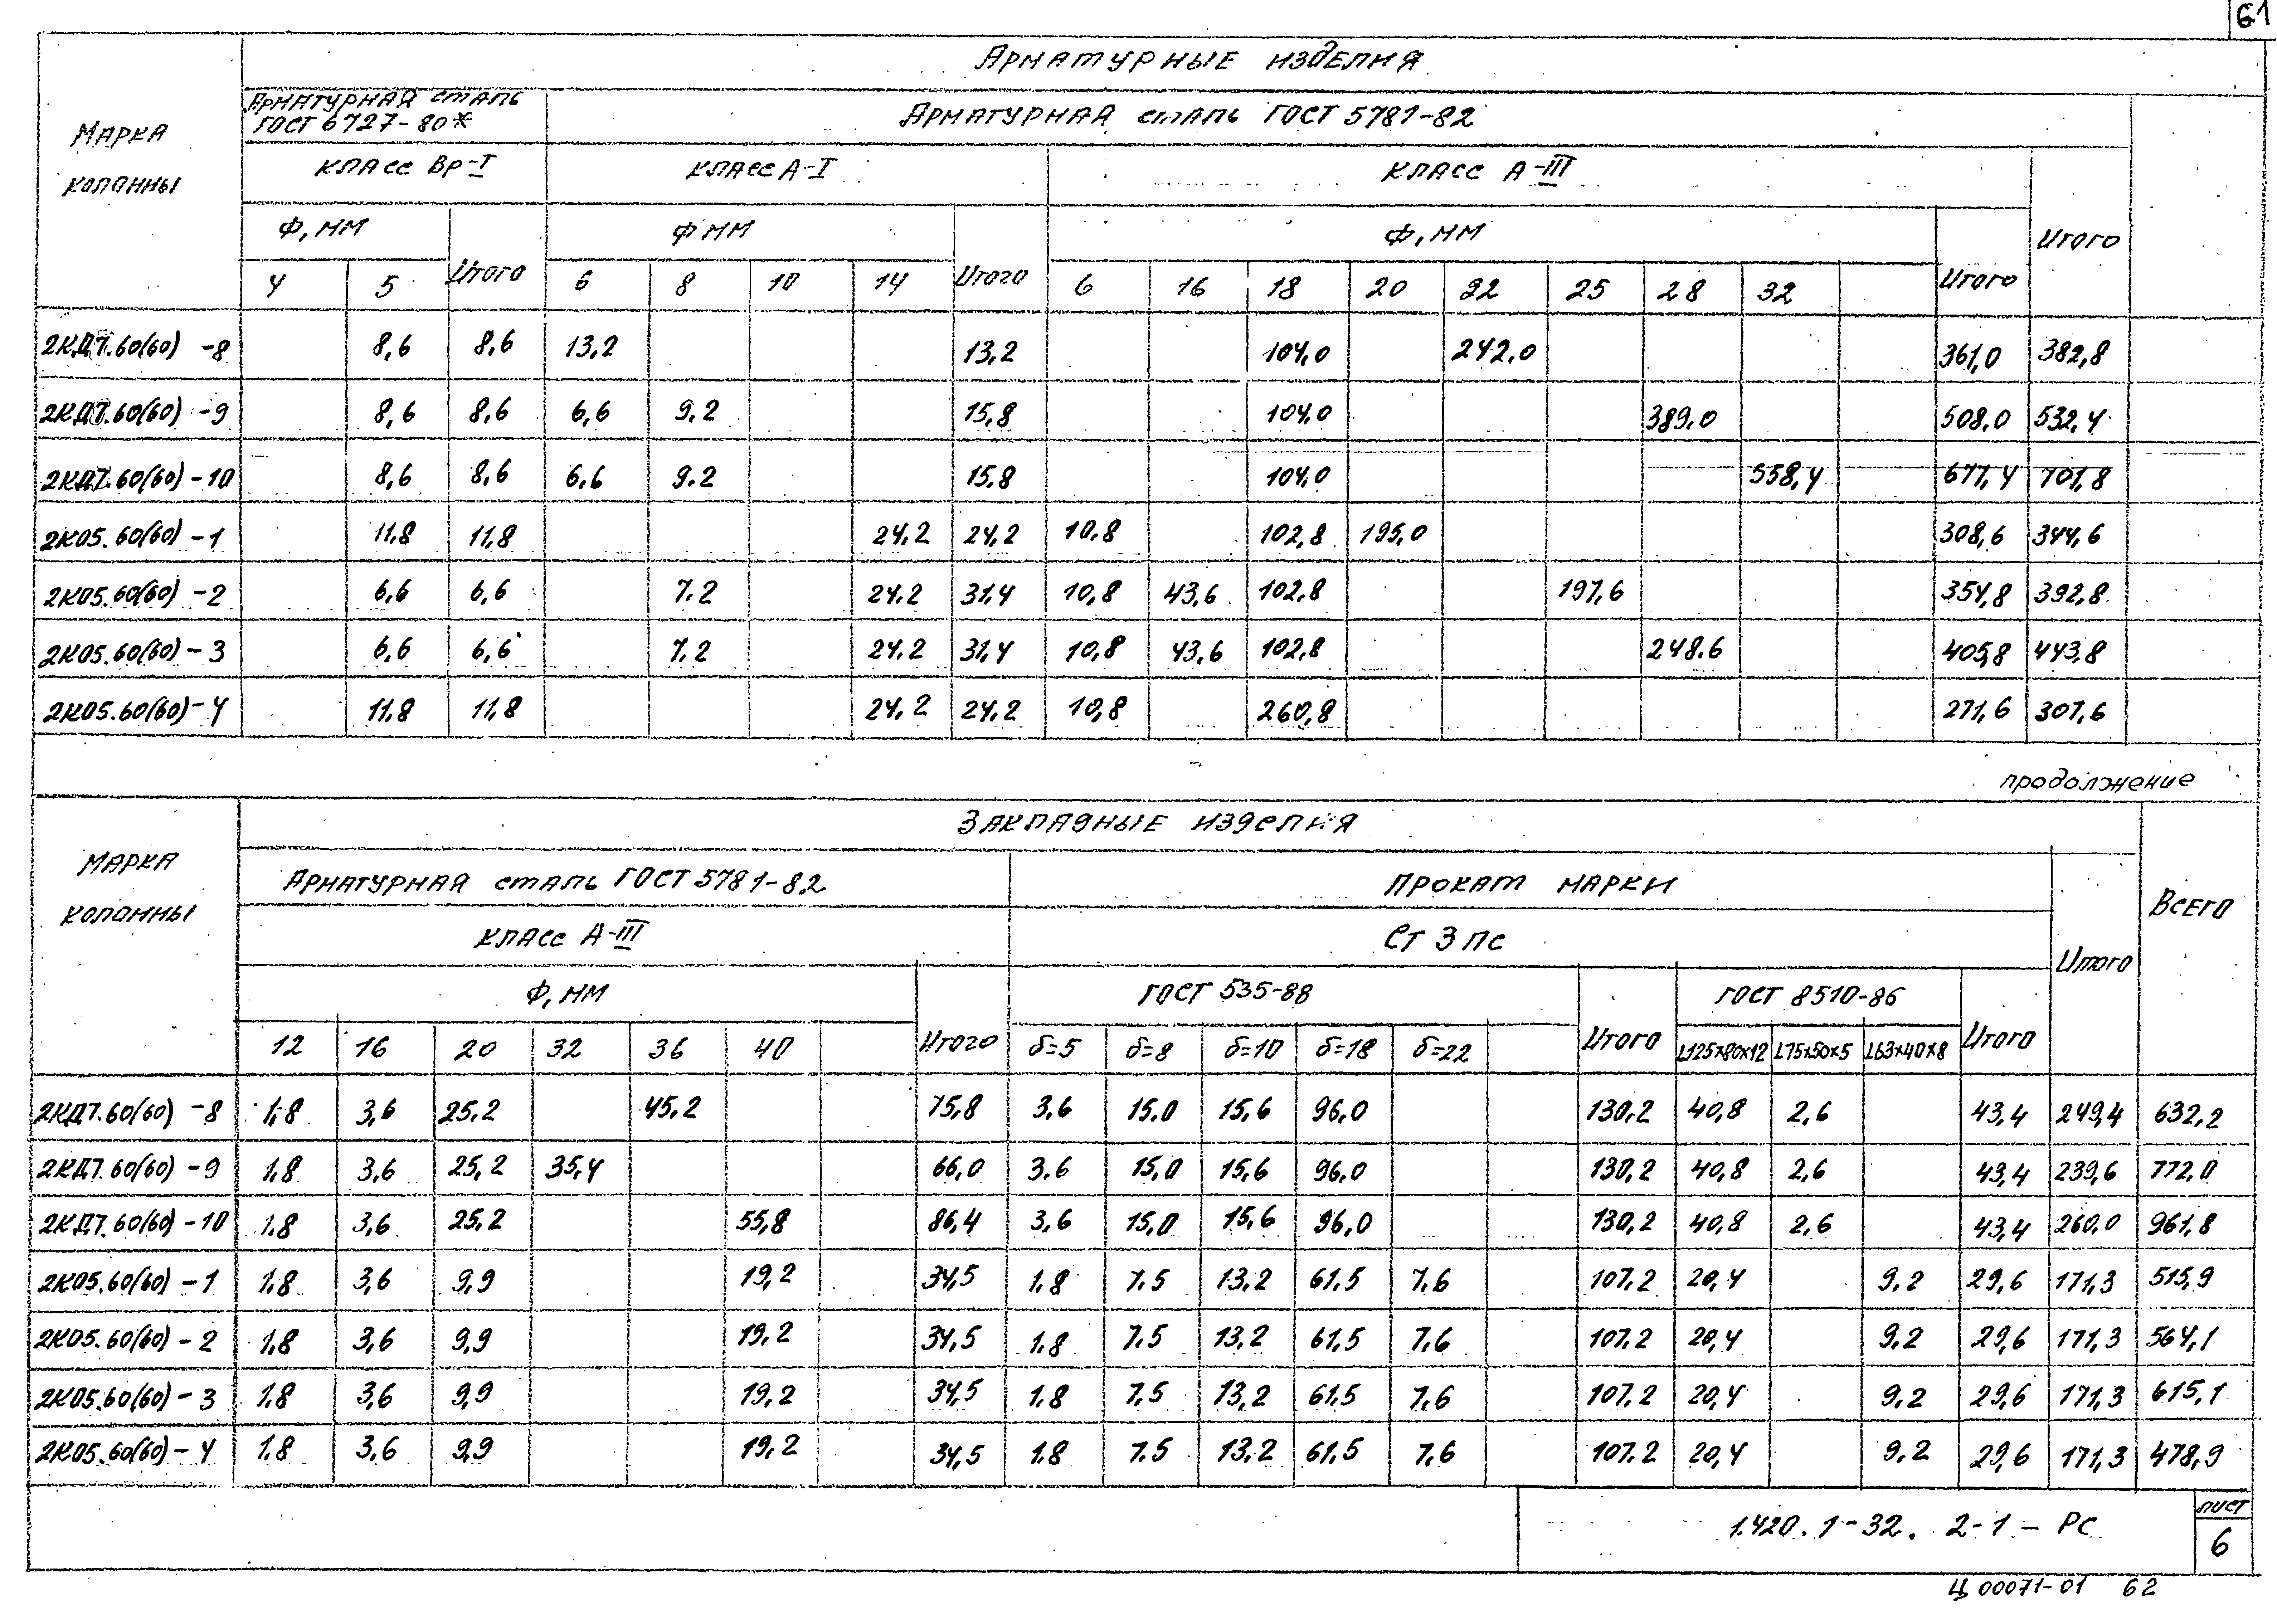 61
Арматурные изделия
Марка колонны
Арматурная сталь ГОСТ 6727-80*
Арматурная сталь ГОСТ 5781-82
класс Вр-I
класс А-I
класс А-III
Ф, мм
Ф мм
Ф, мм
Итого
4 5 Итого 6 8 10 14 Итого 6 16 18 20 22 25 28 32 Итого
2КД7.60(60) -8 8,6 8,6 13,2 13,2 104,0 242,0 361,0 382,8
2КД7.60(60) -9 8,6 8,6 6,6 9.2 15,8 104,0 389,0 508,0 532,4
2КД7.60(60) -10 8,6 8,6 6,6 9.2 15,8 104,0 558,4 677,4 701,8
2К05.60(60) -1 11,8 11,8 24,2 24,2 10,8 102,8 195,0 308,6 344,6
2К05.60(60) -2 6,6 6,6 7.2 24,2 31,4 10,8 43,6 102,8 197,6 354,8 392,8
2К05.60(60) -3 6,6 6,6 7.2 24,2 31,4 10,8 43,6 102,8 248.6 405,8 443,8
2К05.60(60) -4 11,8 11,8 24,2 24,2 10,8 260,8 271,6 307,6
продолжение
Марка колонны
Закладные изделия
Арматурная сталь ГОСТ 5781-82
Прокат марки
Всего
класс А-III
Ст 3 пс
Итого
Ф, мм
ГОСТ 535-88
ГОСТ 8510-86
12 16 20 32 36 40 Итого δ=5 δ=8 δ=10 δ=18 δ=22 Итого L125x80x12 L75x50x5 L63x40x8 Итого
2КД7.60(60) -8 1,8 3,6 25,2 45,2 75,8 3,6 15.0 15,6 96,0 130,2 40,8 2,6 43,4 249,4 632,2
2КД7.60(60) -9 1,8 3,6 25,2 35,4 66,0 3.6 15,0 15,6 96,0 130,2 40,8 2,6 43,4 239,6 772,0
2КД7.60(60) -10 1,8 3,6 25,2 55,8 86,4 3,6 15,0 15,6 96,0 130,2 40,8 2,6 43,4 260,0 961,8
2К05.60(60) -1 1,8 3,6 9,9 19,2 34,5 1,8 7.5 13,2 61.5 7,6 107.2 20,4 9.2 29,6 171,3 515,9
2К05.60(60) -2 1,8 3,6 9,9 19,2 34,5 1,8 7.5 13,2 61,5 7,6 107.2 20,4 9.2 29,6 171,3 564,1
2К05.60(60) -3 1,8 3,6 9,9 19,2 34,5 1,8 7,5 13,2 61,5 7,6 107,2 20,4 9.2 29,6 171,3 615,1
2К05.60(60) -4 1,8 3,6 9,9 19,2 34,5 1,8 7.5 13,2 61,5 7,6 107.2 20,4 9.2 29,6 171,3 478,9
1.420.1-32. 2-1-РС
лист
6
Ц 00071-01 62